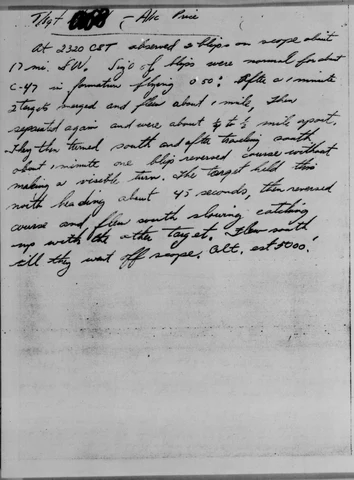 T/Sgt - Abc Price
At 2320 CST observed 2 blips on scope about
17 mi. SW. Size of blips were normal for about
C-47 in formation flying 050° After a 1 minute
2 targets merged and flew about 1 mile, then
separated again and were about 1/4 to 1/2 mile apart.
They then turned south and after tracking south
about 1 minute one blip reversed course without
making a visible turn. The target held this
north heading about 45 seconds, then reversed
course and flew south slowing catching
up with the other target. Flew south
till they went off scope. Alt. est 5000'